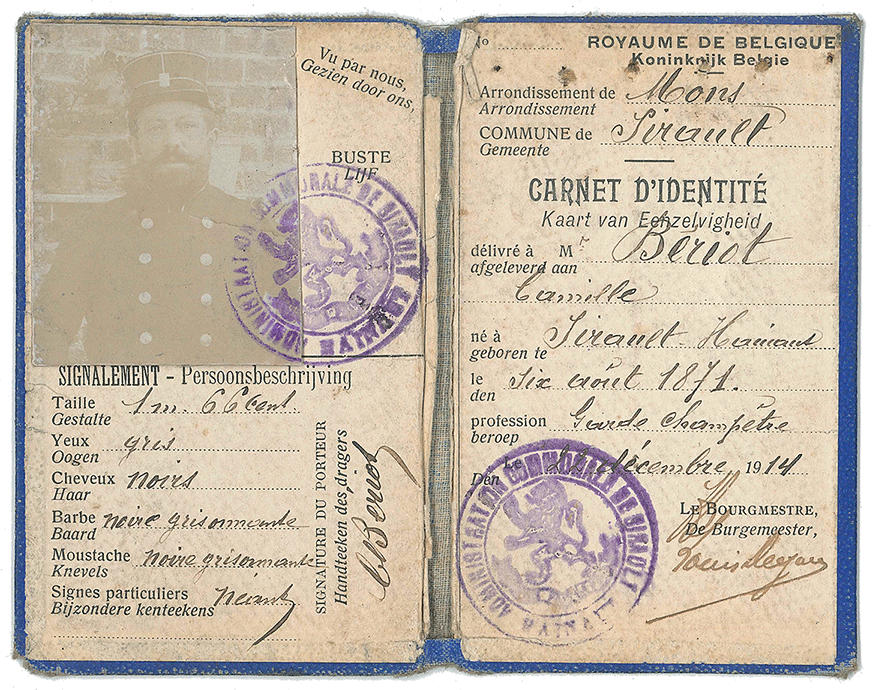 Vu par nous,
Gezien door ons,
BUSTE
LIJF
ADMINISTRATION COMMUNALE DE SIRAULT
HAINAUT
SIGNALEMENT - Persoonsbeschrijving
Taille 1m. 66cent.
Gestalte
Yeux gris
Oogen
Cheveux noirs
Haar
Barbe noire grisonnante
Baard
Moustache noire grisonnante
Knevels
Signes particuliers néant
Bijzondere kenteekens
SIGNATURE DU PORTEUR
Handteeken des dragers
C Beriot
No
ROYAUME DE BELGIQUE
Koninkrijk Belgie
Arrondissement de Mons
Arrondissement
COMMUNE de Sirault
Gemeente
CARNET D'IDENTITÉ
Kaart van Eenzelvigheid
délivré à Mr Bériot
afgeleverd aan
Camille
né à Sirault Hainaut
geboren te
le Six août 1871.
den
profession Garde Champêtre
beroep
Le 22 décembre 1914
Den
LE BOURGMESTRE,
De Burgemeester,
Louis
ADMINISTRATION COMMUNALE DE SIRAULT
HAINAUT